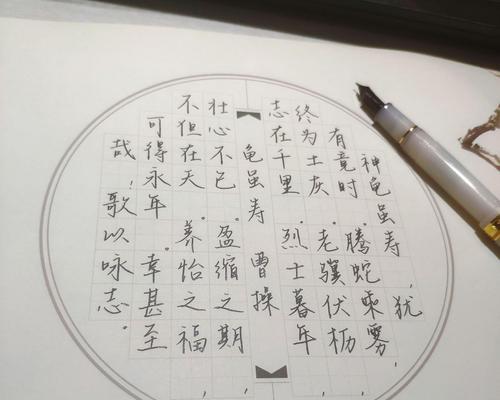 神龟虽寿，犹
有竟时。腾蛇乘雾，
终为土灰。老骥伏枥，
志在千里。烈士暮年，
龟虽寿 曹操
壮心不已。盈缩之期，
不但在天。养怡之福，
可得永年。幸甚至
哉！歌以咏志。